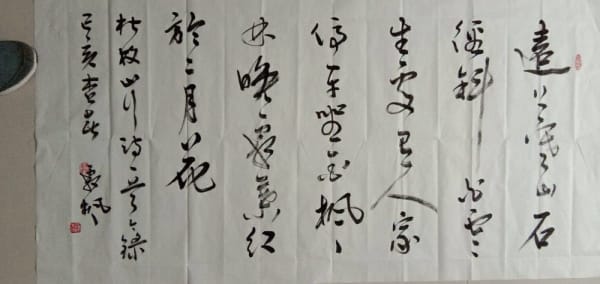 遠上寒山石
徑斜白雲
生處有人家
停車坐愛楓
林晚霜葉紅
於二月花
杜牧山行詩一首錄
己亥春楓